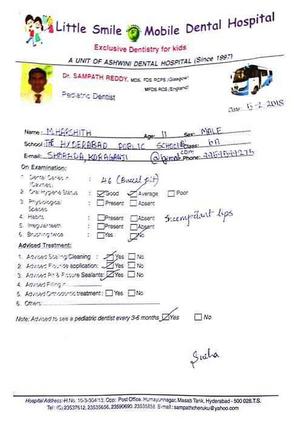 Little Smile Mobile Dental Hospital
Exclusive Dentistry for kids
A UNIT OF ASHWINI DENTAL HOSPITAL (Since 1997)
Dr. SAMPATH REDDY, MDS, FDS RCPS (Glasgow)
MFDS RCS (England)
Pediatric Dentist
Date: 15-2-2018
Name: M. HARSHITH Age: 11 Sex: MALE
School: THE HYDERABAD PUBLIC SCHOOL Class:
E-mail: @gmail.com
On Examination:
1. Dental Caries in (Cavities) : 46 (Buccal pit)
2. Oral Hygiene Status : Good Average Poor
3. Physiological Spaces : Present Absent
4. Habits : Present Absent Incompetent lips
5. Irregular teeth : Present Absent
6. Brushing twice : Yes No
Advised Treatment:
1. Advised Scaling Cleaning : Yes No
2. Advised Flouride application: Yes No
3. Advised Pit & Fissure Sealants: Yes No
4. Advised Filling in
5. Advised Orthodontic treatment : Yes No
6. Others:
Note: Advised to see a pediatric dentist every 3-6 months Yes No
Hospital Address: H.No. 10-3-304/13, Opp: Post Office, Humayunnagar, Masab Tank, Hyderabad - 500 028.T.S.
Tel: 23537612, 23535656, 23590690, E-mail: sampathcheruku@yahoo.com